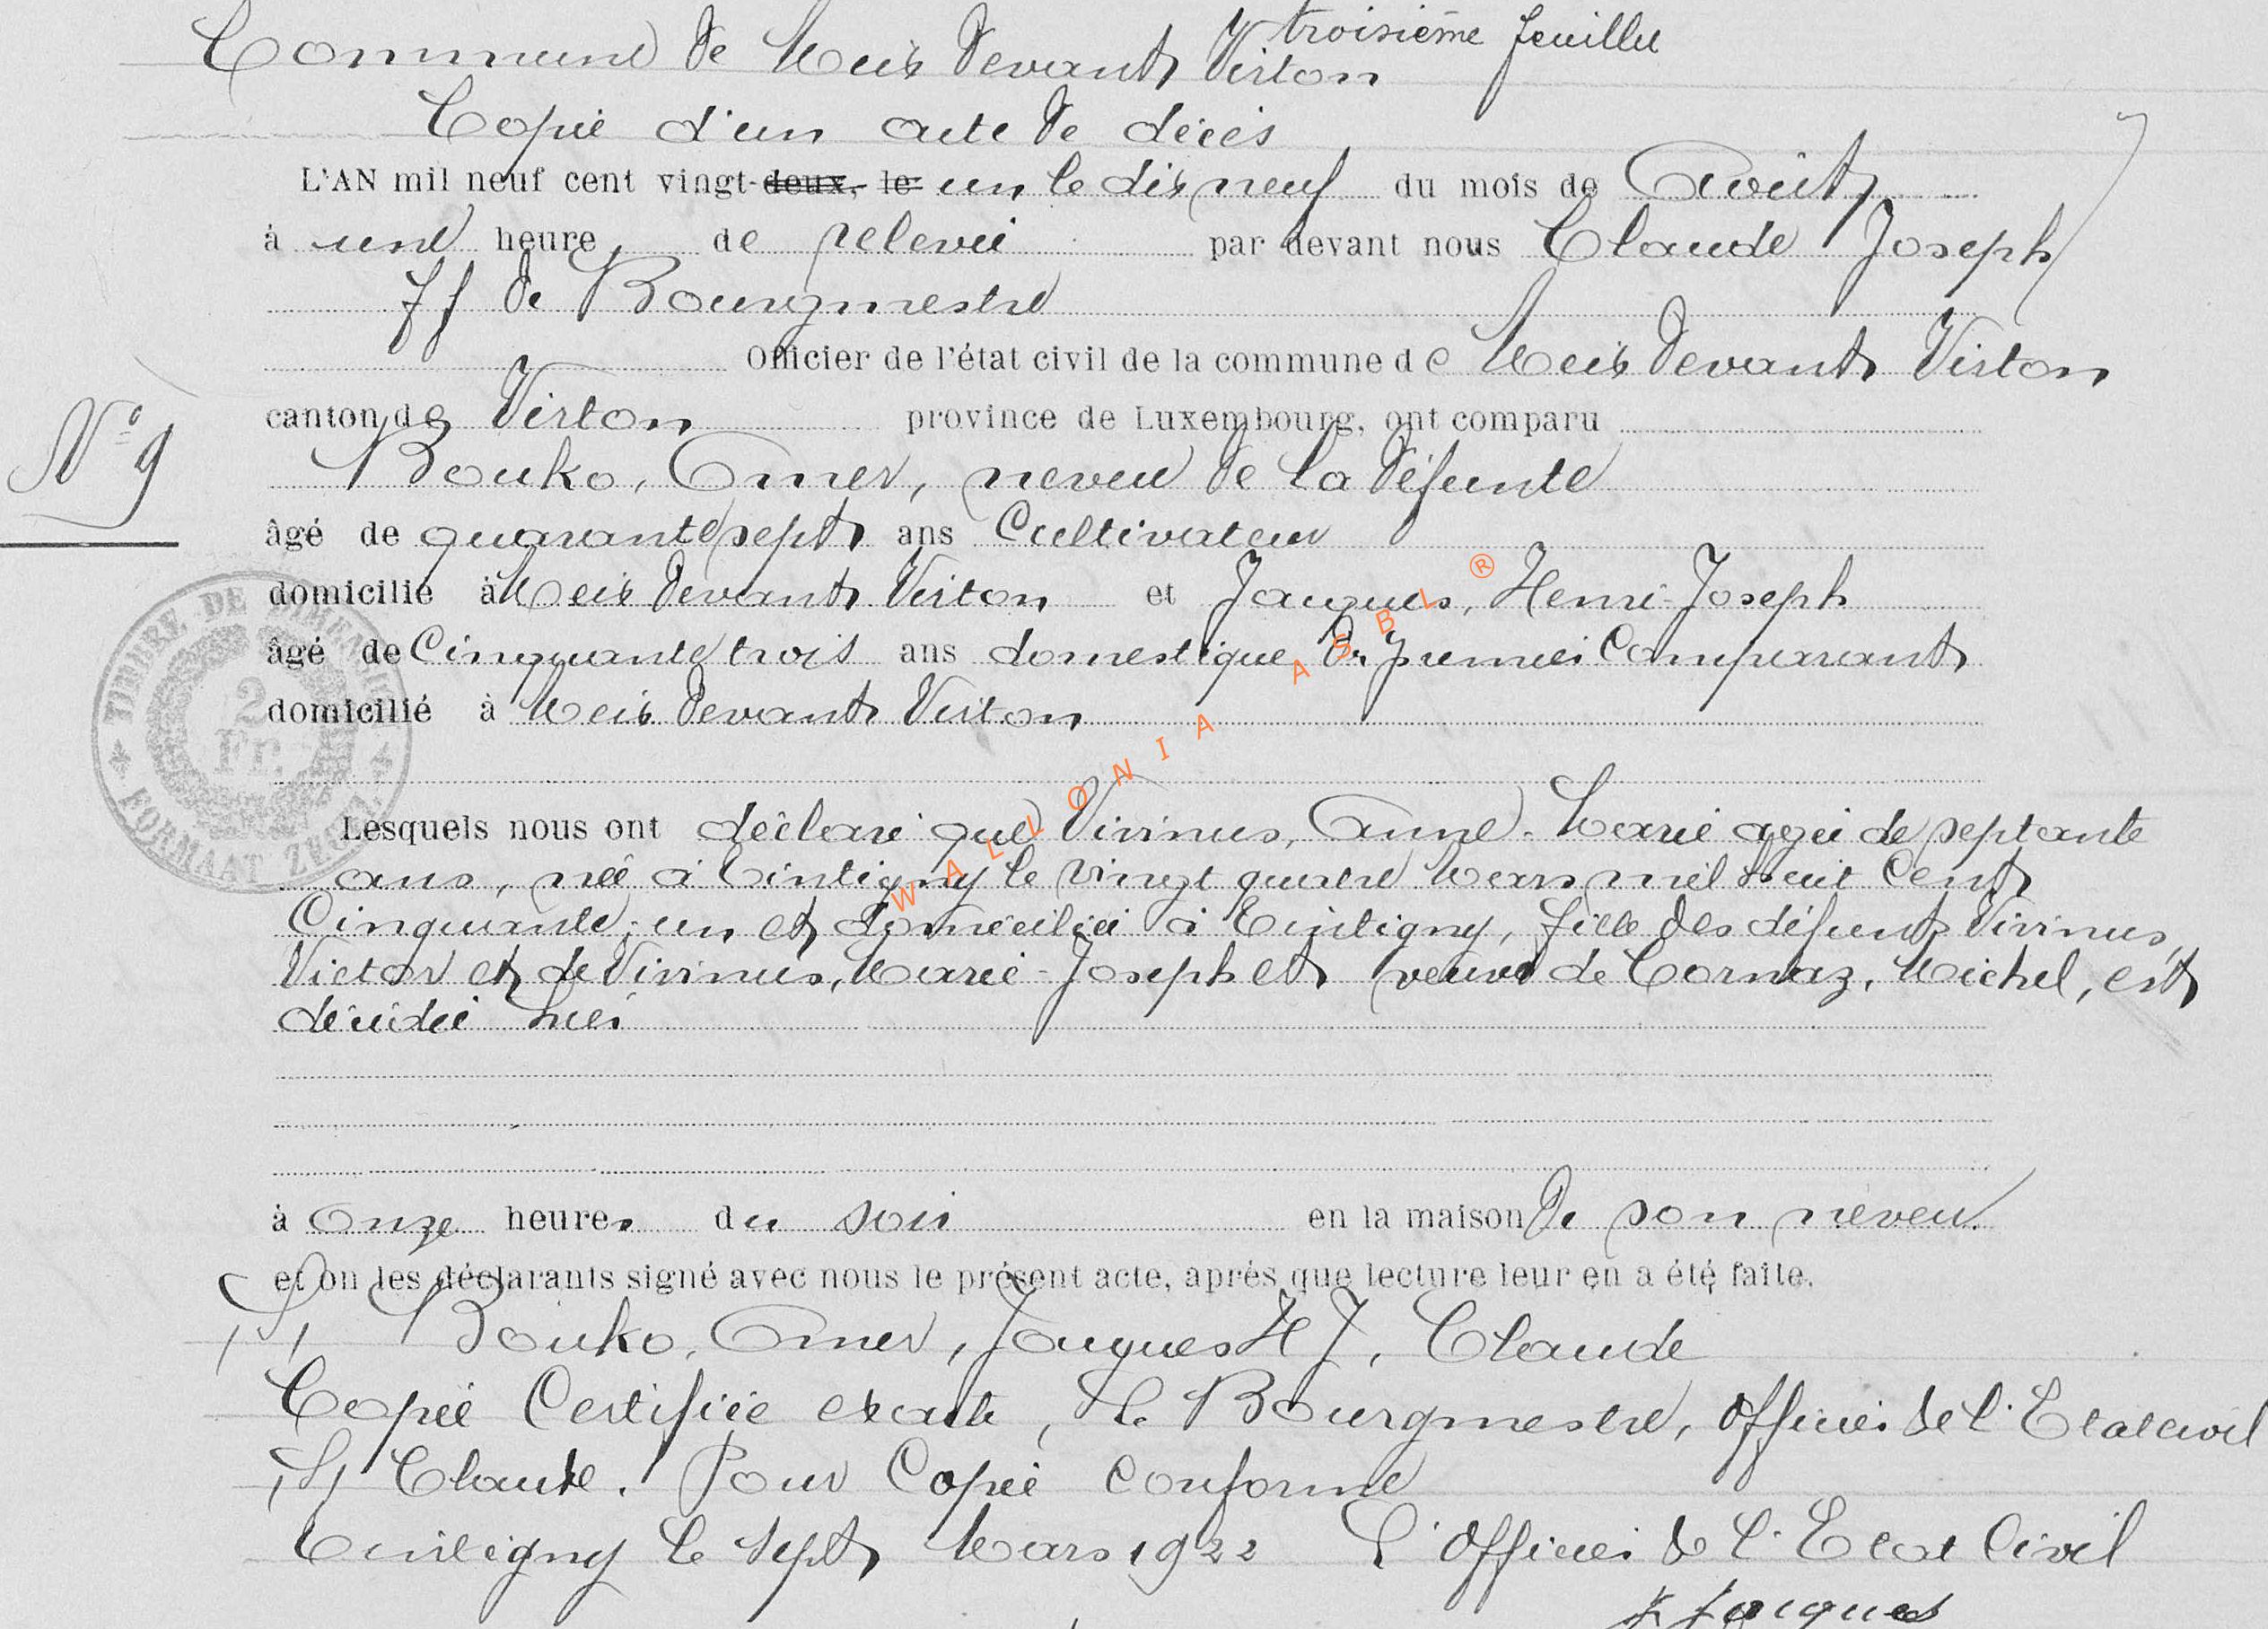 troisième feuillet
Commune de Meix devant Virton
Copie d'un acte de décès
L'AN mil neuf cent vingt-deux, le un le dix neuf du mois de Août
à une heure, de relevée par devant nous Claude Joseph
ff de Bourgmestre
Officier de l'état civil de la commune de Meix devant Virton
canton de Virton province de Luxembourg, ont comparu
N° 9
Bouko, Omer, neveu de la défunte
âgé de quarante sept ans Cultivateur
domicilié à Meix devant Virton et Jacques, Henri-Joseph
âgé de Cinquante trois ans domestique du premier Comparant
domicilié à Meix devant Virton
TIMBRE DE DIMENSION
2
Fr.
FORMAAT ZEGEL
Lesquels nous ont déclaré que Virinus, Anne-Marie agée de septante
ans, née à Tintigny le vingt quatre Mars mil huit Cent
Cinquante-un et domiciliée à Tintigny, fille des défunts Virinus,
Victor et de Virinus, Marie-Joseph et veuve de Cornaz, Michel, est
décédée hier
à onze heures du soir en la maison de son neveu
et on les déclarants signé avec nous le présent acte, après que lecture leur en a été faite.
(S) Bouko, Omer, Jacques H J, Claude
Copie Certifiée exacte, Le Bourgmestre, Officier de l'Etat civil
(S) Claude. Pour Copie conforme
Tintigny le sept Mars 1922 L'Officier de l'Etat Civil
Jacques
WALLONIA ASBL ®